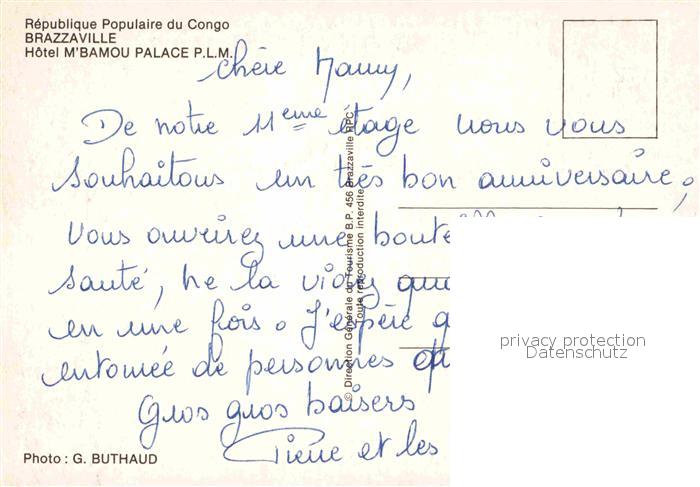 République Populaire du Congo
BRAZZAVILLE
Hôtel M'BAMOU PALACE P.L.M.
Chère Mamy,
De notre 11eme étage nous vous
souhaitons un très bon anniversaire;
Vous ouvrirez une boute
santé, ne la videz qu
en une fois. J'espère q
entourée de personnes
Gros gros baisers
Pierre et les
© Direction Générale du Tourisme B.P. 456 Brazzaville RPC
Toute reproduction interdite
privacy protection
Datenschutz
Photo : G. BUTHAUD